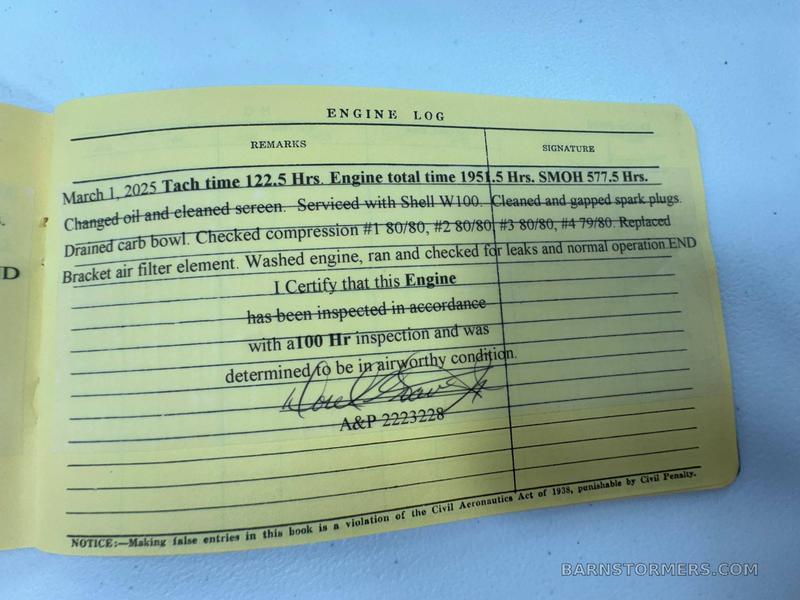 ENGINE LOG
REMARKS SIGNATURE
March 1, 2025 Tach time 122.5 Hrs. Engine total time 1951.5 Hrs. SMOH 577.5 Hrs.
Changed oil and cleaned screen. Serviced with Shell W100. Cleaned and gapped spark plugs.
Drained carb bowl. Checked compression #1 80/80, #2 80/80, #3 80/80, #4 79/80. Replaced
Bracket air filter element. Washed engine, ran and checked for leaks and normal operation.END
I Certify that this Engine
has been inspected in accordance
with a100 Hr inspection and was
determined to be in airworthy condition.
A&P 2223228
NOTICE:—Making false entries in this book is a violation of the Civil Aeronautics Act of 1938, punishable by Civil Penalty.
s.
ND
BARNSTORMERS.COM